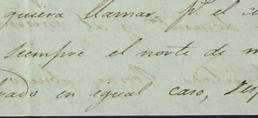 quiera llamar pr. el co
siempre el norte de m
rado en igual caso, res